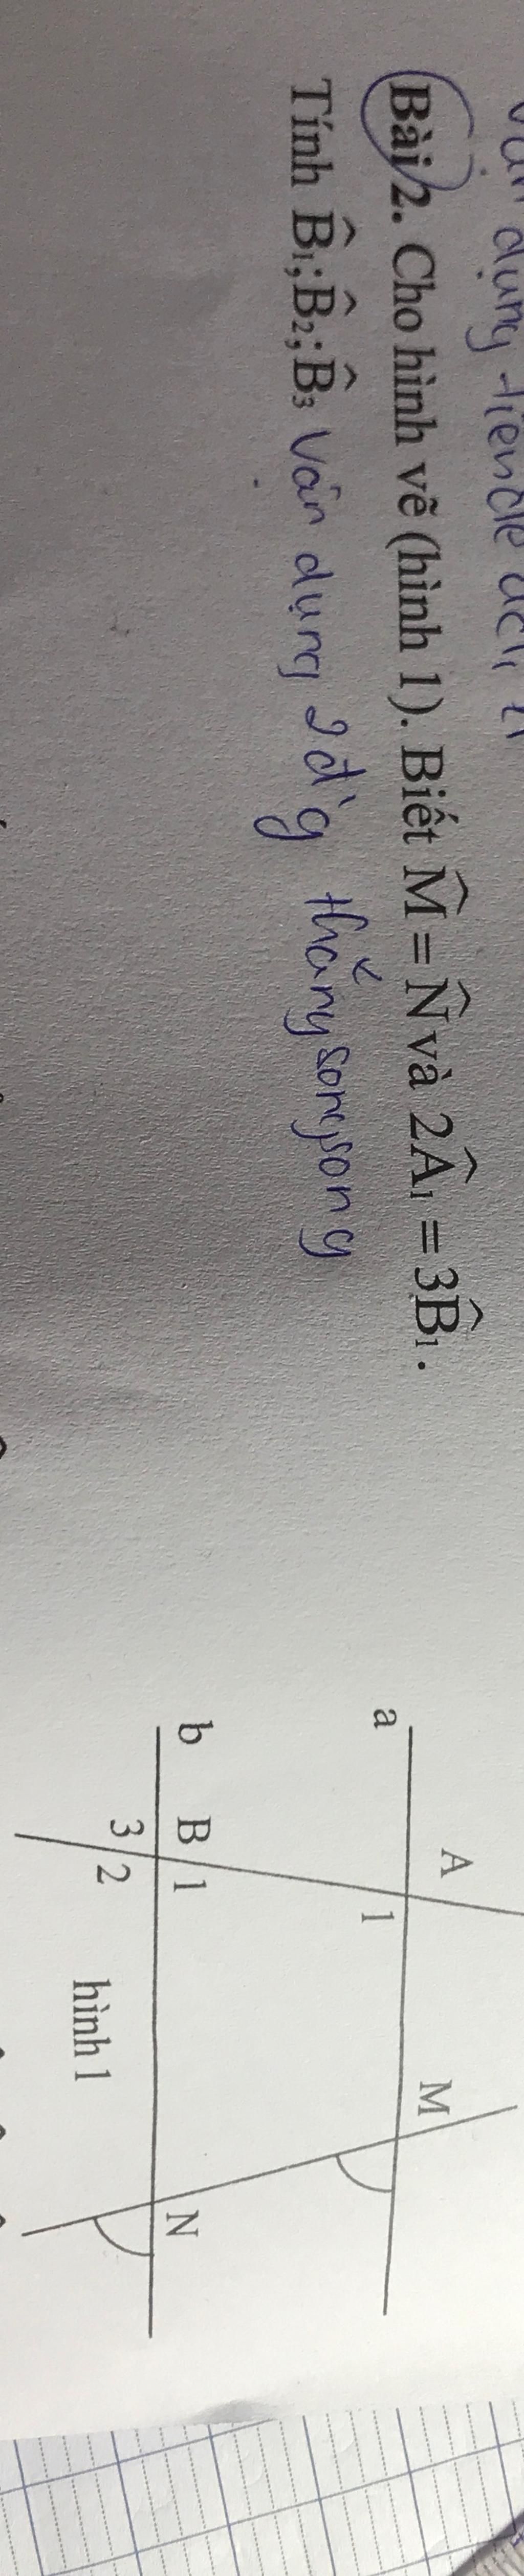 vận dụng tiên đề
Bài 2. Cho hình vẽ (hình 1). Biết M̂ = N̂ và 2Â₁ = 3B̂₁.
Tính B̂₁; B̂₂; B̂₃ Vận dụng 2 đ'g thẳng song song
a
A
1
M
b
B
1
3
2
N
hình 1